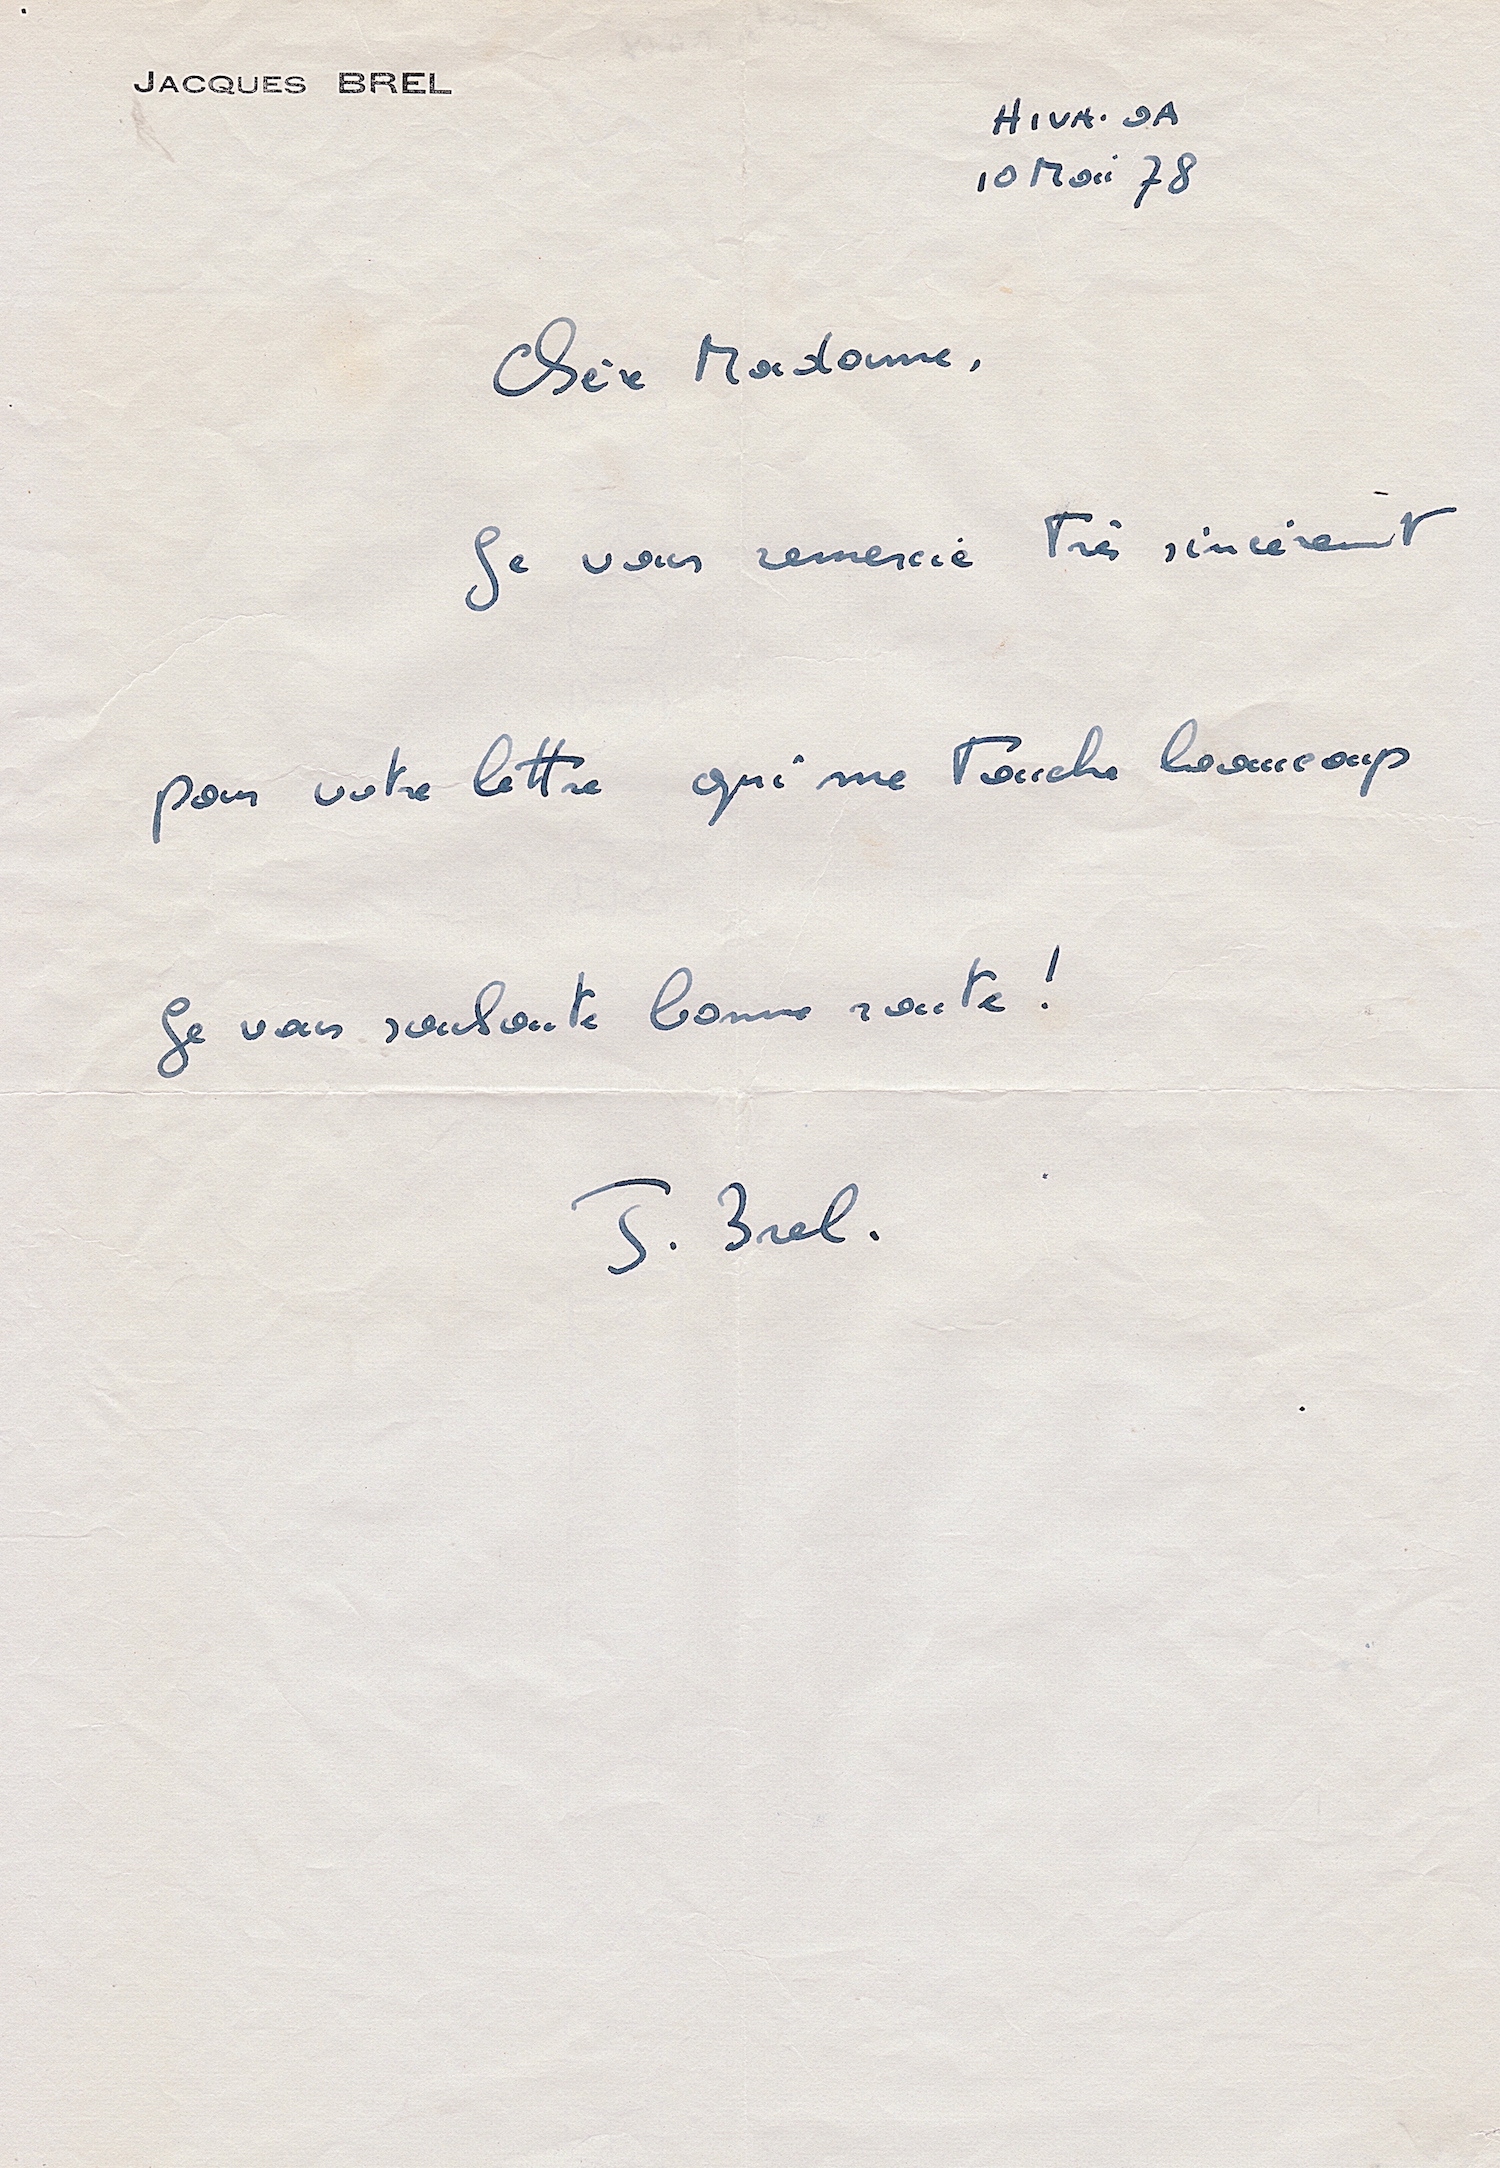 JACQUES BREL
HIVA. OA
10 Mai 78
Chère Madame,
Je vous remercie très sincèrement
pour votre lettre qui me touche beaucoup
Je vous souhaite bonne route !
J. Brel.